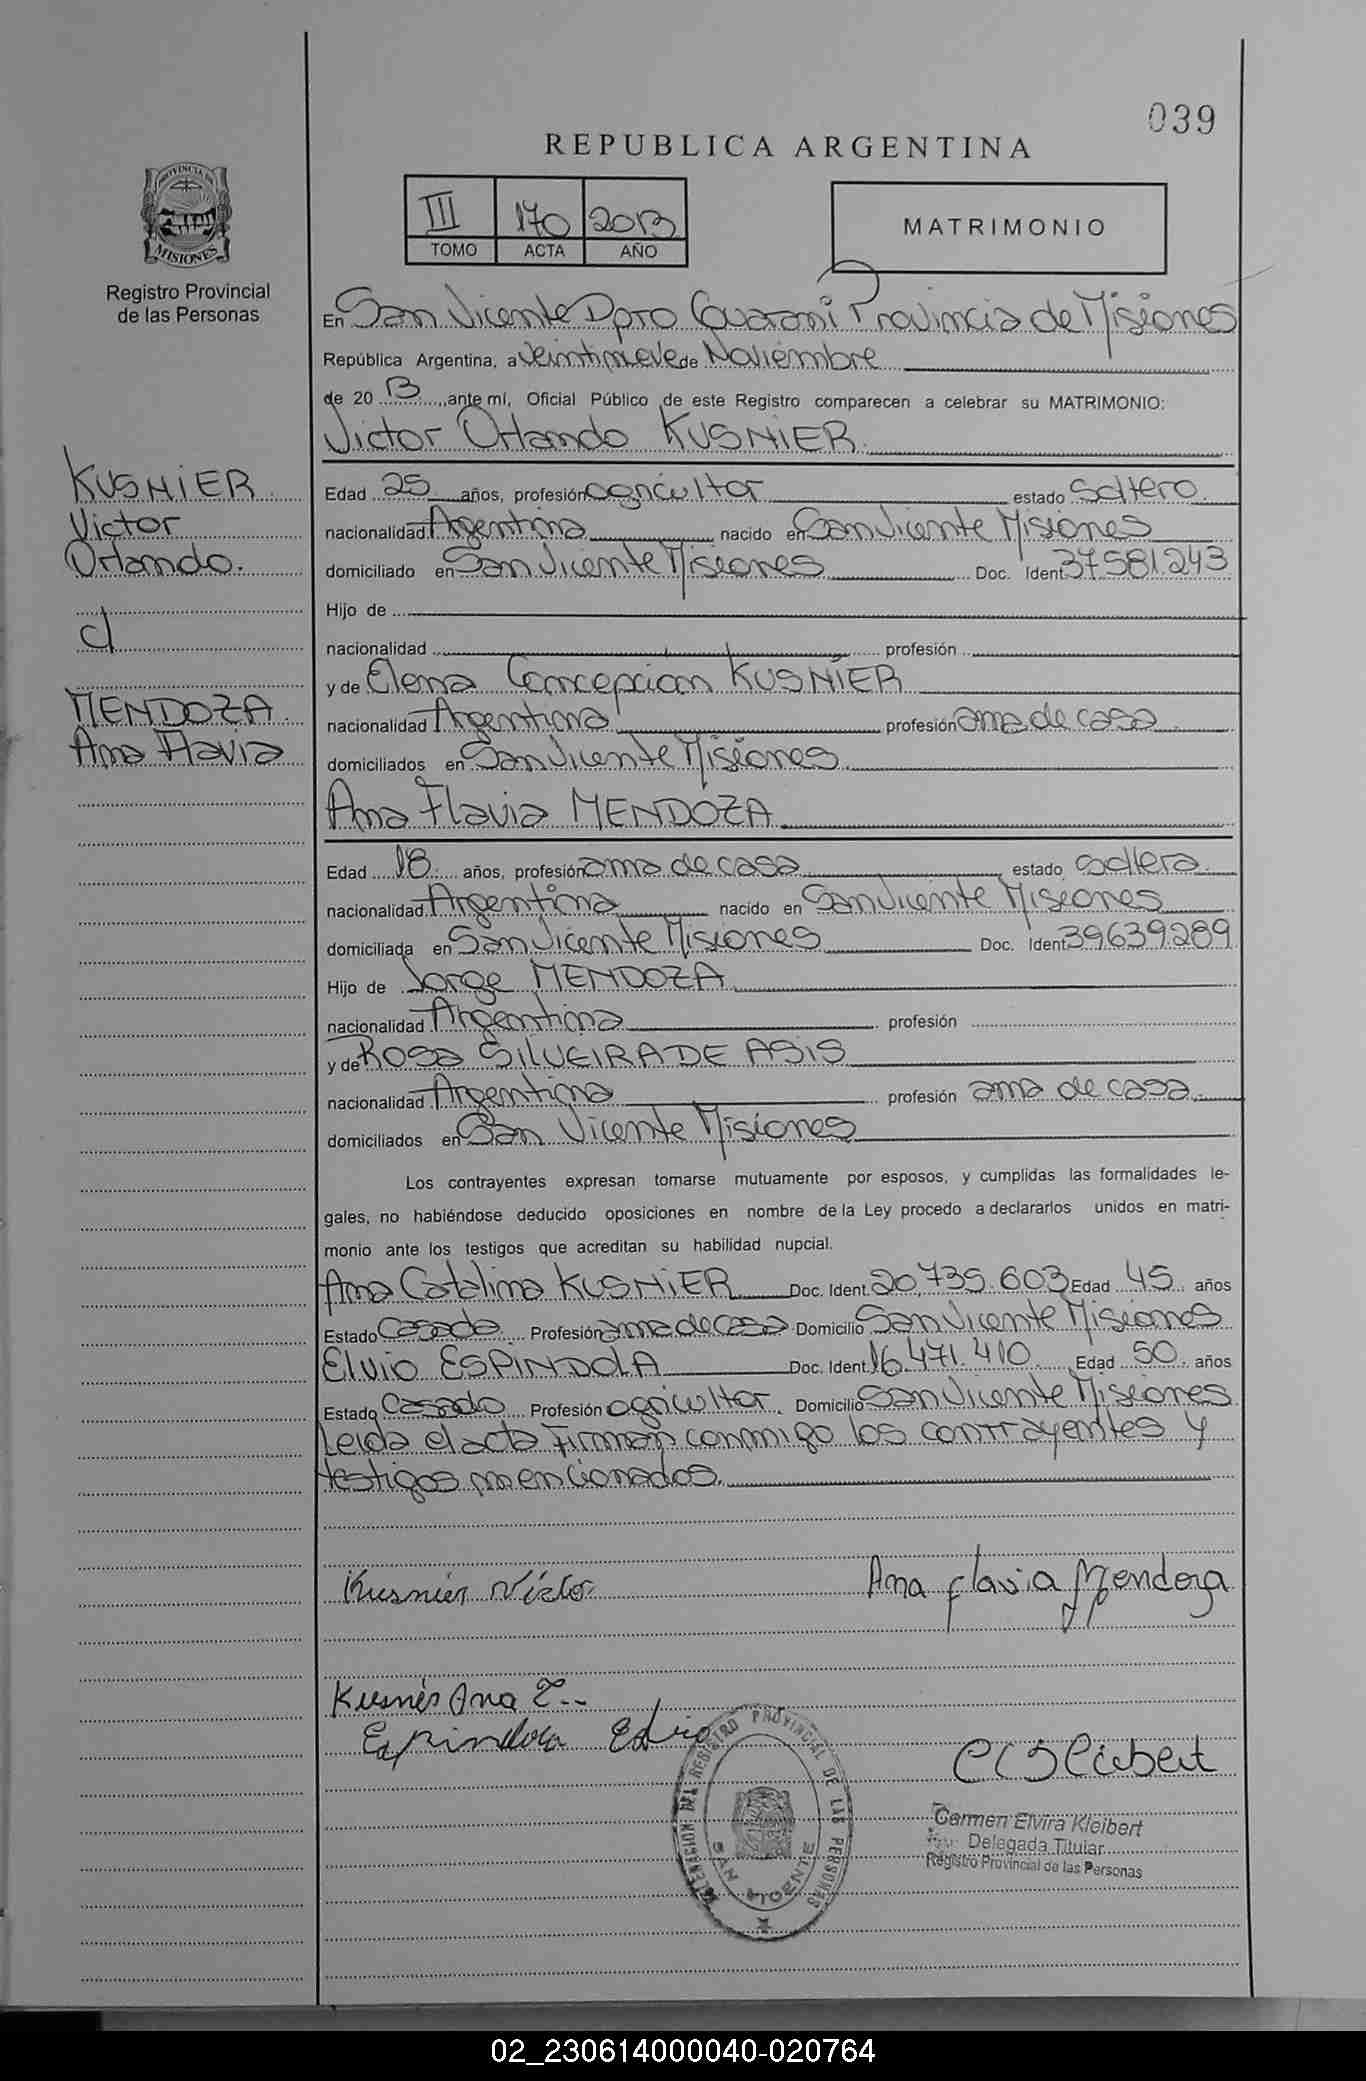 039
REPUBLICA ARGENTINA
PROVINCIA DE
MISIONES
Registro Provincial
de las Personas
III 170 2013
TOMO ACTA AÑO
MATRIMONIO
En San Vicente Dpto Guarani Provincia de Misiones
República Argentina, a veintinueve de Noviembre
de 2013, ante mí, Oficial Público de este Registro comparecen a celebrar su MATRIMONIO:
Victor Orlando KUSNIER
KUSNIER
Victor
Orlando.
c/
MENDOZA
Ana Flavia
Edad 25 años, profesión agricultor estado Soltero.
nacionalidad Argentina nacido en San Vicente Misiones
domiciliado en San Vicente Misiones Doc. Ident 37.581.243
Hijo de
nacionalidad profesión
y de Elena Concepcion KUSNIER
nacionalidad Argentina profesión ama de casa.
domiciliados en San Vicente Misiones
Ana Flavia MENDOZA
Edad 18 años, profesión ama de casa estado soltera.
nacionalidad Argentina nacido en San Vicente Misiones
domiciliada en San Vicente Misiones Doc. Ident 39639289
Hijo de Jorge MENDOZA
nacionalidad Argentina profesión
y de Rosa SILVEIRA DE ASIS
nacionalidad Argentina profesión ama de casa.
domiciliados en San Vicente Misiones
Los contrayentes expresan tomarse mutuamente por esposos, y cumplidas las formalidades le-
gales, no habiéndose deducido oposiciones en nombre de la Ley procedo a declararlos unidos en matri-
monio ante los testigos que acreditan su habilidad nupcial.
Ana Catalina KUSNIER Doc. Ident. 20.735.603 Edad 45 años
Estado Casada Profesión ama de casa Domicilio San Vicente Misiones
Elvio ESPINDOLA Doc. Ident. 16.471.410 Edad 50 años
Estado Casado Profesión agricultor. Domicilio San Vicente Misiones
Leida el acta firman conmigo los contrayentes y
testigos mencionados.
Kusnier Victor
Ana flavia Mendoza
Kusnier Ana C..
Espindola Elvio
DELEGACION DEL REGISTRO PROVINCIAL DE LAS PERSONAS
SAN VICENTE
Carmen Elvira Kleibert
Delegada Titular
Registro Provincial de las Personas
02_230614000040-020764